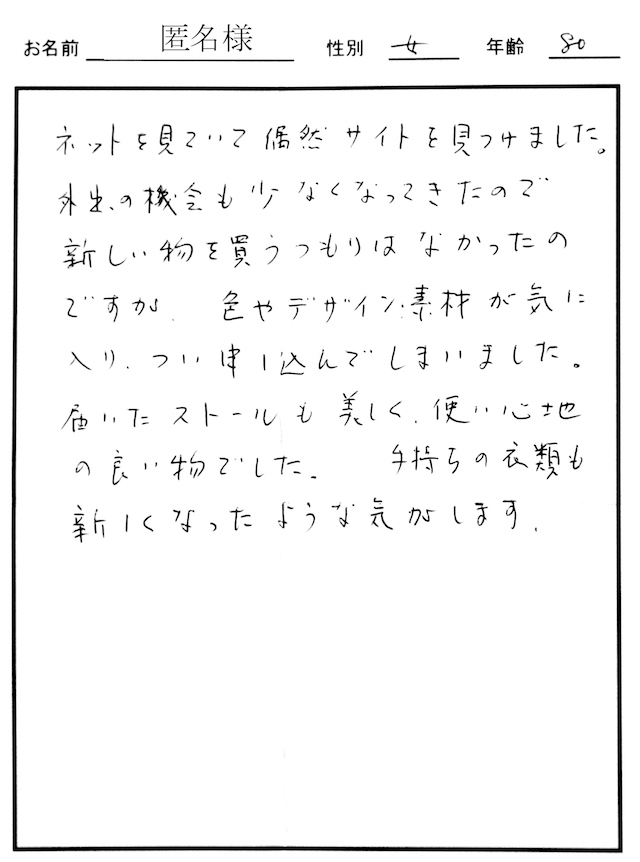 お名前 匿名様 性別 女 年齢 80
ネットを見ていて偶然サイトを見つけました。
外出の機会も少なくなってきたので
新しい物を買うつもりはなかったの
ですが、色やデザイン、素材が気に
入り、つい申し込んでしまいました。
届いたストールも美しく、使い心地
の良い物でした。手持ちの衣類も
新しくなったような気がします。